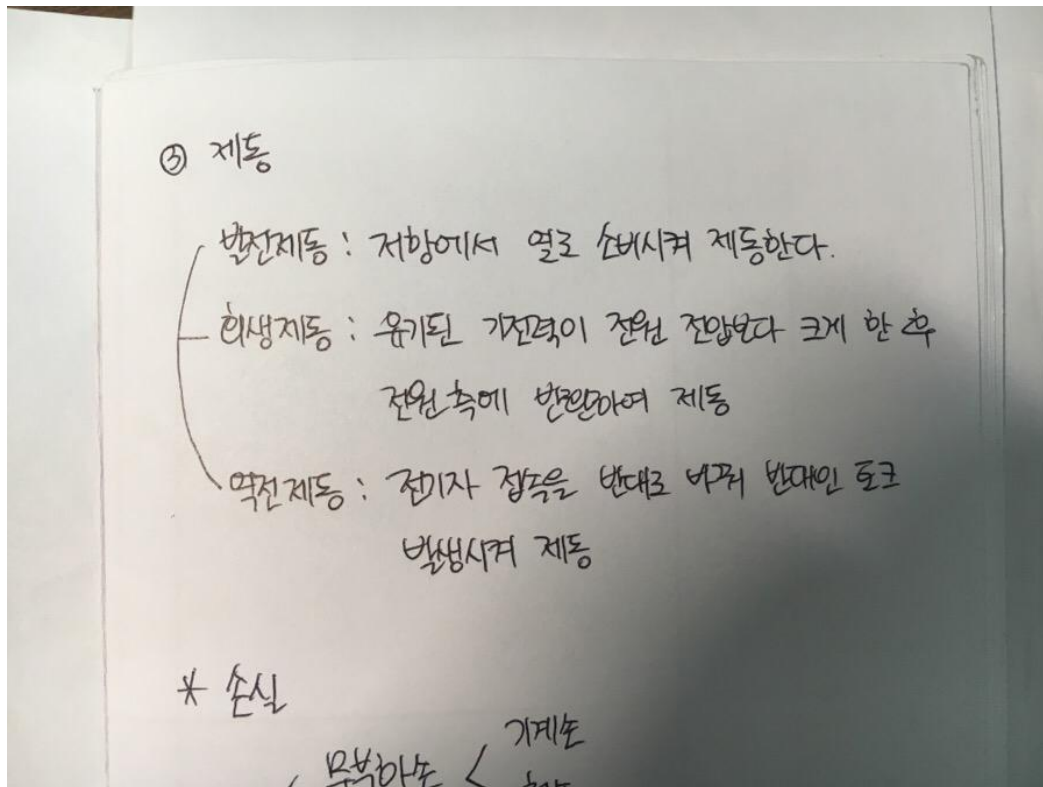 ③ 제동
발전제동 : 저항에서 열로 소비시켜 제동한다.
회생제동 : 유기된 기전력이 전원 전압보다 크게 한 후
전원측에 반환하여 제동
역전제동 : 전기자 접속을 반대로 바꿔 반대인 토크
발생시켜 제동
* 손실
기계손
무부하손 <